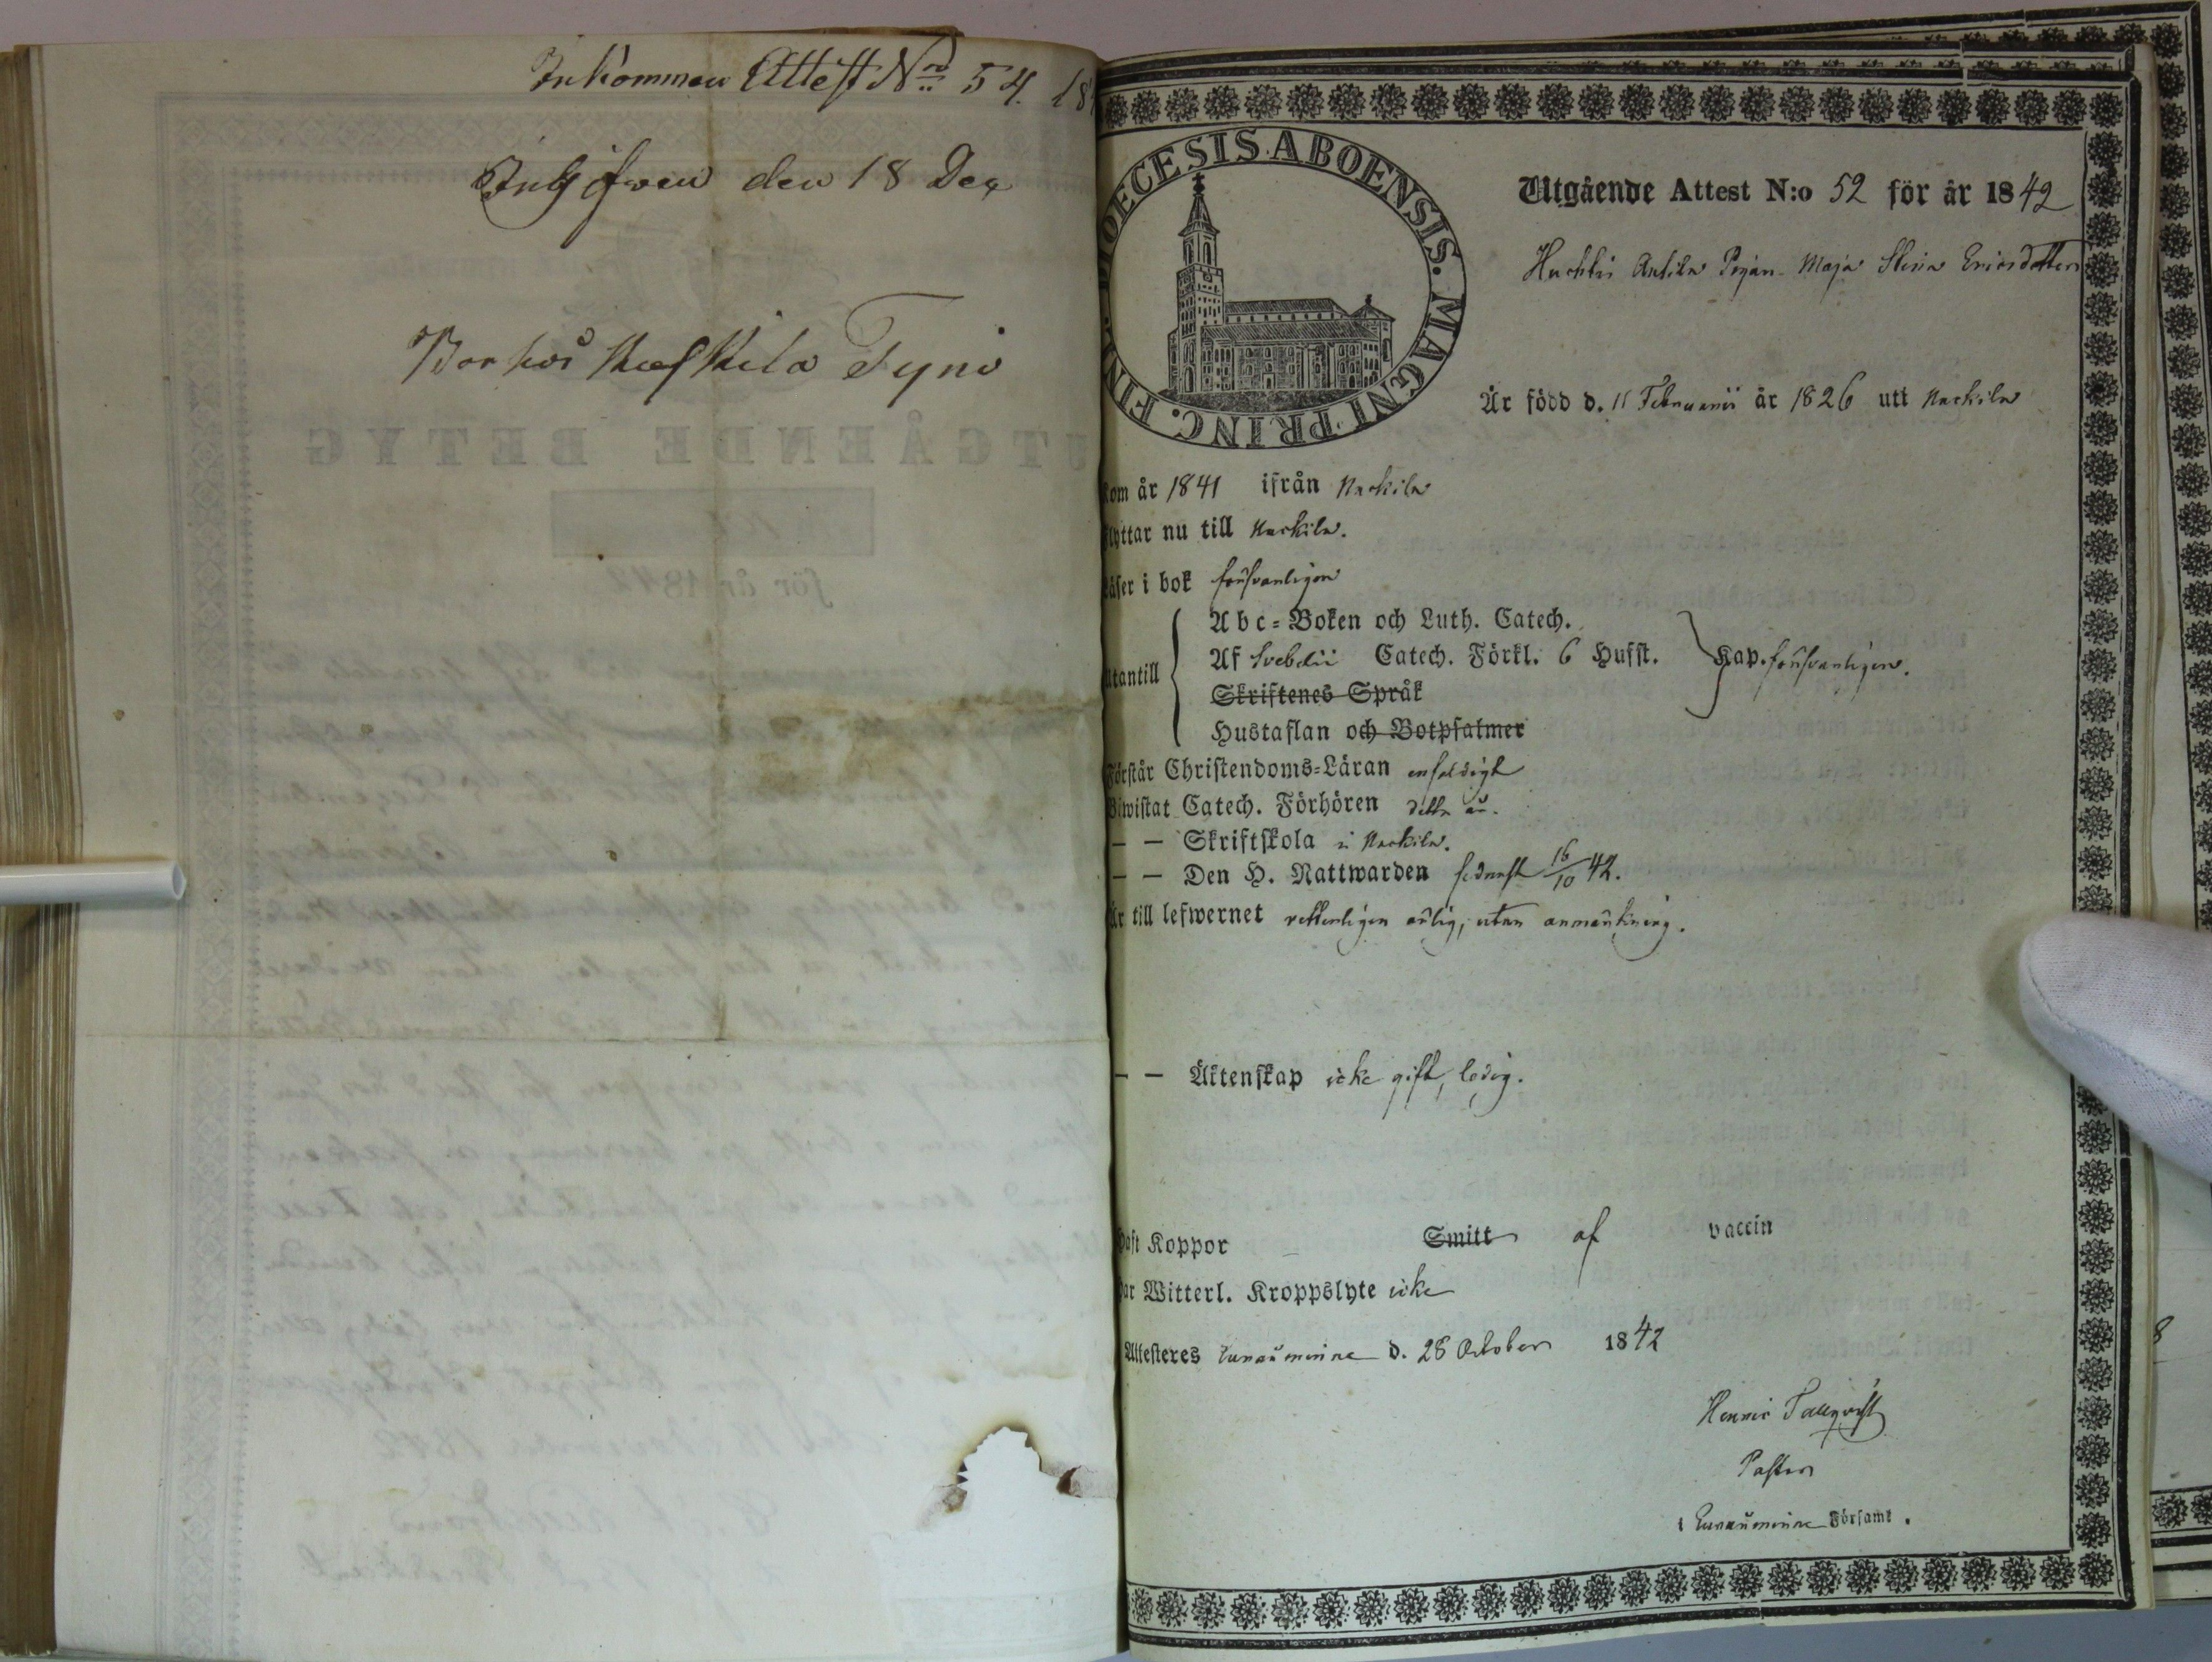 Inkommen Attest No 54. 18
Ingifwen den 18 Dec
Bor hos Tyni
DIOECESIS ABOENSIS. MAGNI PRINC. FIN
Utgående Attest N:o 52 för år 1842
Huckti Anttila Pigan Maja Stina Ericsdotter
Är född d. 11 Februarii år 1826 uti Nackila
Kom år 1841 ifrån Nackila
Flyttar nu till Nackila.
Läser i bok försvarligen
Utantill
Abc-Boken och Luth. Catech.
Af Svebelii Catech. Förkl. 6 Hufst. Kap. försvarligen.
Skriftenes Språk
Hustaflan och Botpsalmer
Förstår Christendoms-Läran enfaldigt
Biwistat Catech. Förhören detta år.
— — Skriftskola i Nackila.
— — Den H. Nattwarden sednast 16/10 42.
Är till lefwernet veterligen ärlig, utan anmärkning.
— — Äktenskap icke gift, ledig.
Haft Koppor Smitt af vaccin
Har Witterl. Kroppslyte icke
Attesteres Euraåminne d. 28 October 1842
Henric Tallqvist
Pastor
i Euraåminne Församl.